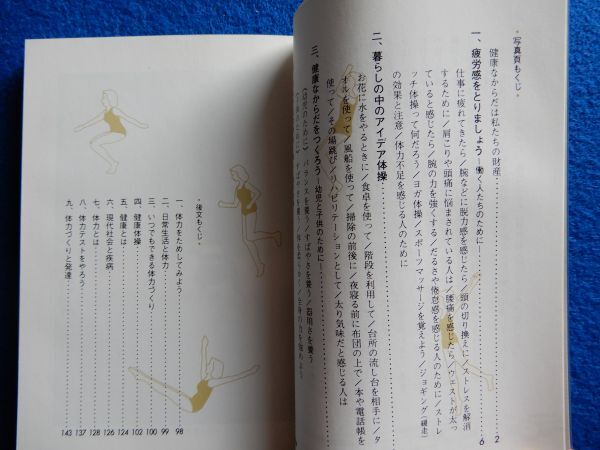 ・写真頁もくじ・
健康なからだは私たちの財産……2
一、疲労感をとりましょう―働く人たちのために―……6
仕事に疲れてきたら/腕などに脱力感を感じたら/頭の切り換えに/ストレスを解消
するために/肩こりや頭痛に悩まされている人は/腰痛を感じたら/ウエストが太っ
ていると感じたら/腕の力を強くする/だるさや倦怠感を感じる人のために/ストレ
ッチ体操って何だろう/ヨガ体操/スポーツマッサージを覚えよう/ジョギング(緩走)
の効果と注意/体力不足を感じる人のために
二、暮らしの中のアイデア体操
お花に水をやるときに/食卓を使って/階段を利用して/台所の流し台を相手に/タ
オルを使って/風船を使って/掃除の前後に/夜寝る前に布団の上で/本や電話帳を
使って/その場跳び/リハビリテーションとして/太り気味だと感じる人は
三、健康なからだをつくろう―幼児と子供のために―
(幼児のために) バランスを養う/すばやさを養う/器用さを養う
・後文もくじ・
一、体力をためしてみよう……98
二、日常生活と体力……99
三、いつでもできる体力づくり……100
四、健康体操……102
五、健康とは……124
六、現代社会と疾病……126
七、体力とは……128
八、体力テストをやろう……137
九、体力づくりと発達……143